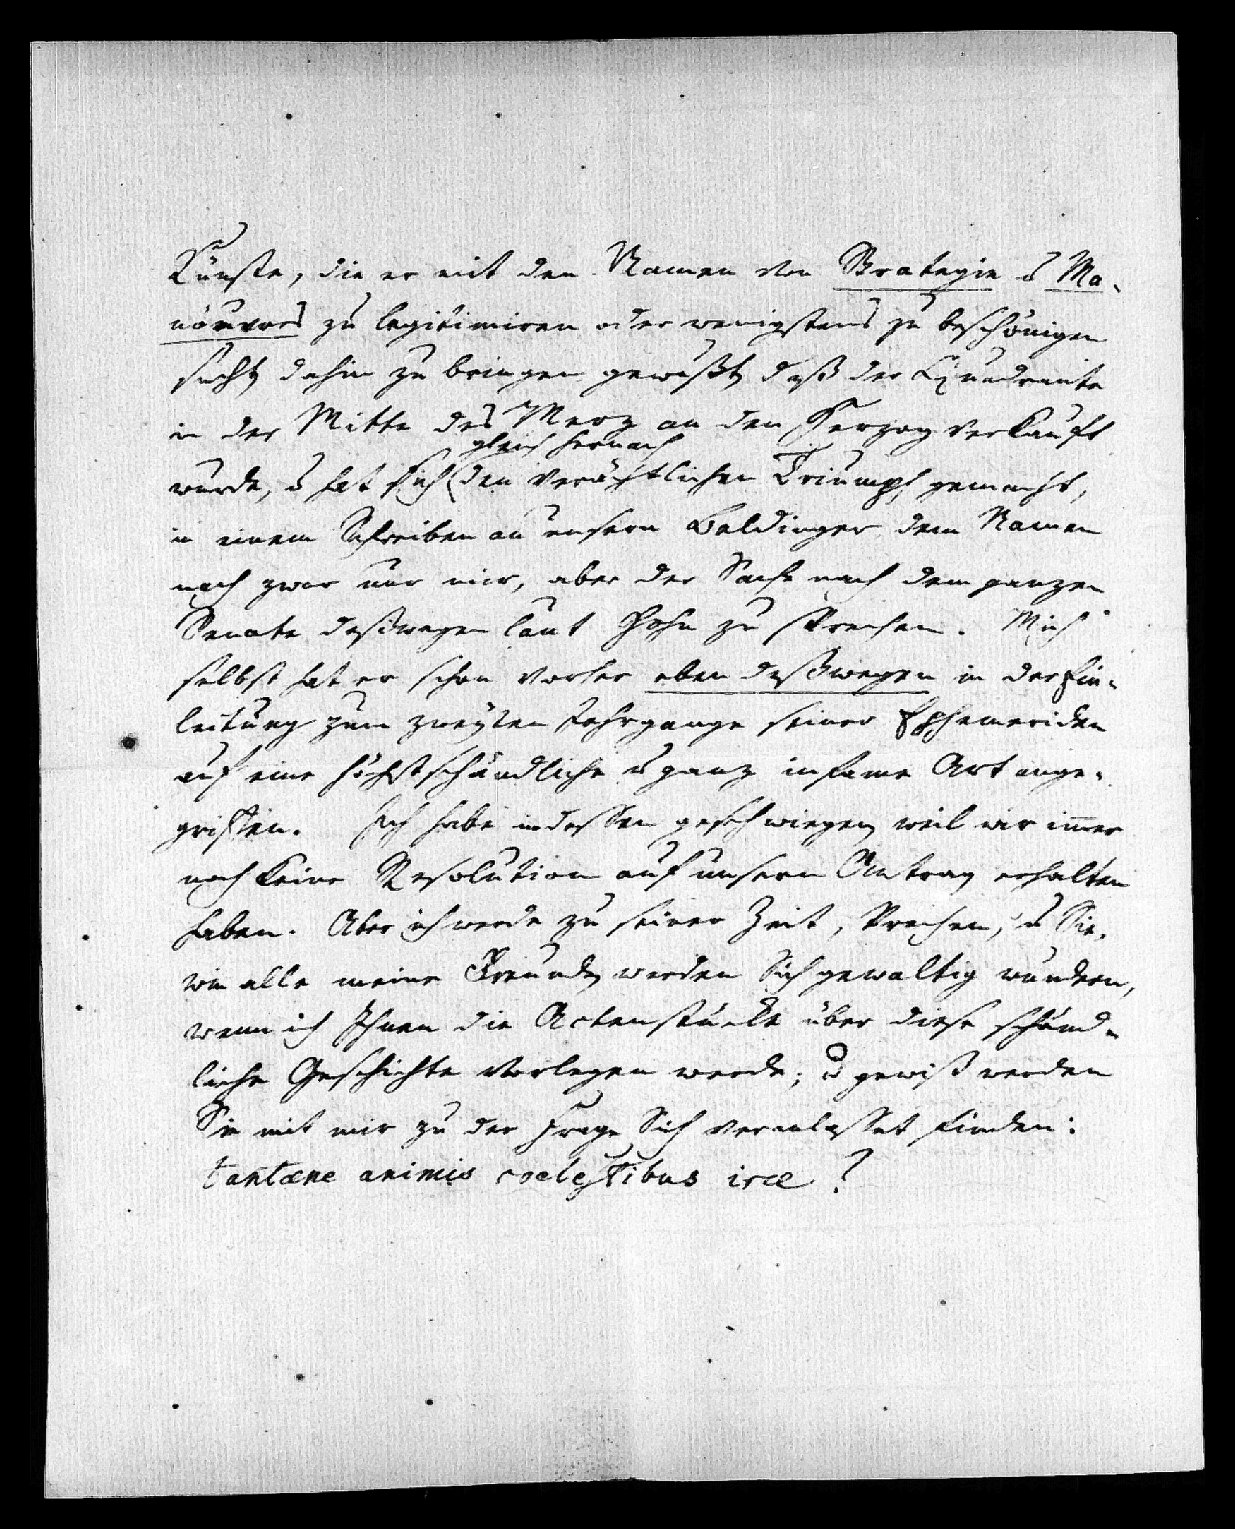 Künste, die er mit den Namen von Strategie u Ma-
nöuvres zu legitimiren oder wenigstens zu beschönigen
sucht, dahin zu bringen gewußt, daß der Quadrante
in der Mitte des Merz an den Herzog verkauft
gleich hernach
wurde, u hat sich den verächtlichen Triumph gemacht,
in einem Schreiben an unsern Baldinger dem Namen
nach zwar nur mir, aber der Sache nach dem ganzen
Senate deßwegen laut Hohn zu sprechen. Mich
selbst hat er schon vorher eben deßwegen in der Ein-
leitung zum zweyten Jahrgange seiner Ephemeriden
auf eine höchstschändliche u ganz infame Art ange-
griffen. Ich habe indessen geschwiegen, weil wir imer
noch keine Resolution auf unsern Antrag erhalten
haben. Aber ich werde zu seiner Zeit sprechen, u Sie,
wie alle meine Freunde, werden Sich gewaltig wundern,
wenn ich Ihnen die Actenstücke über diese schänd-
liche Geschichte vorlegen werde; u gewiß werden
Sie mit mir zu der Frage Sich veranlasset finden:
tantæne animis coelestibus iræ?